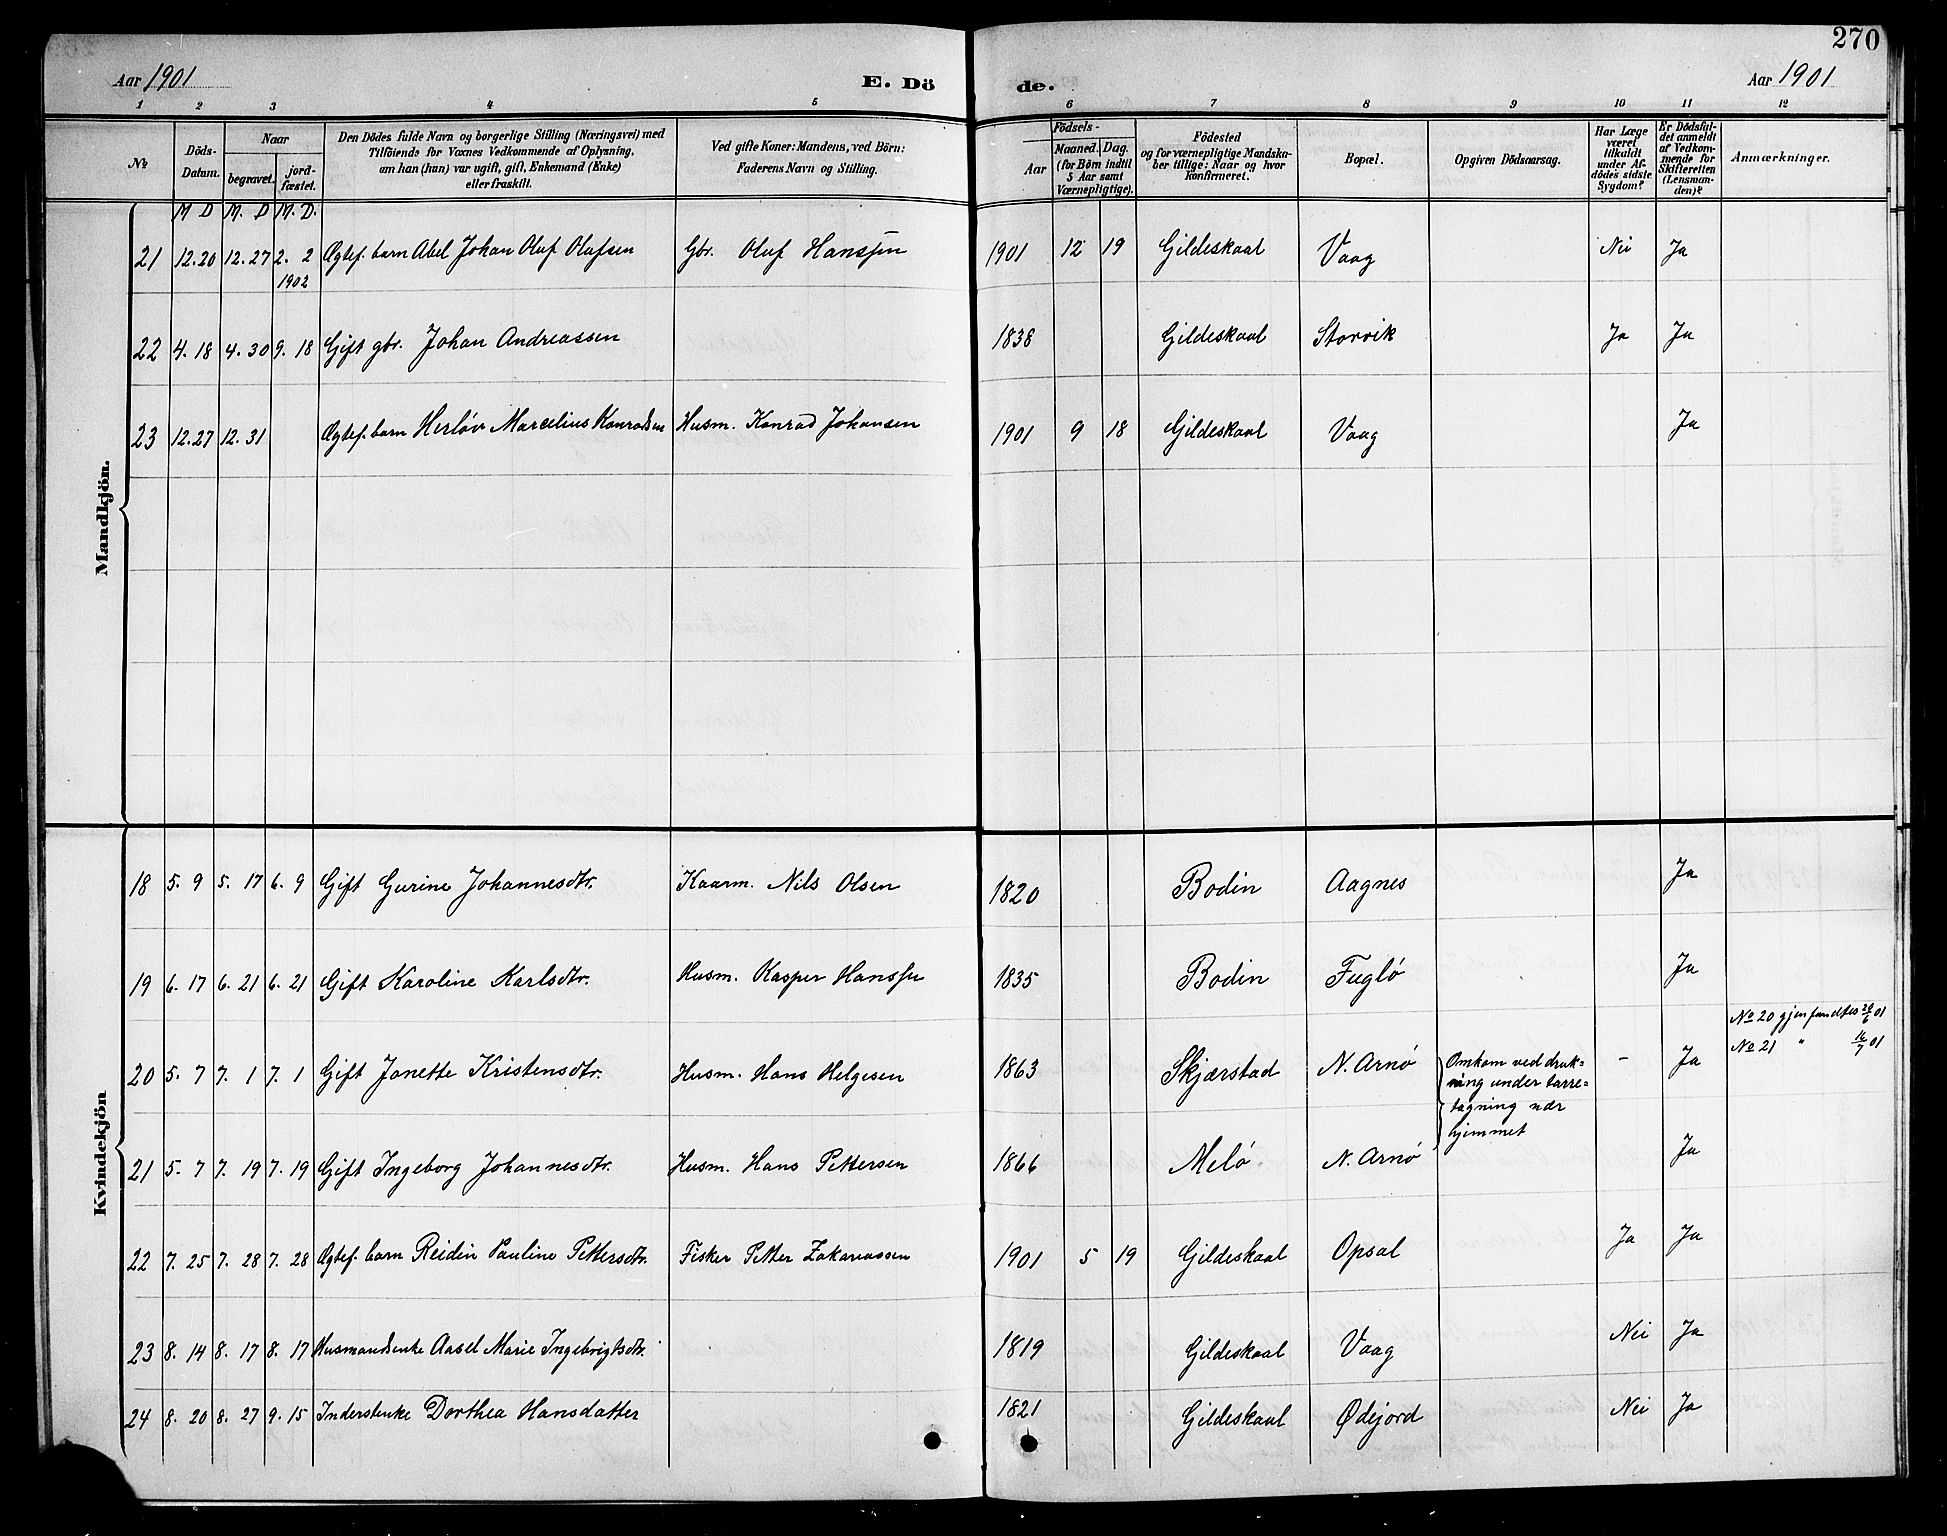 270
Aar 1901 E. Dö de. Aar 1901
1 2 3 4 5 6 7 8 9 10 11 12
No
Döds-Datum.
Naar
begravet.
jord-fæstet.
Den Dödes fulde Navn og borgerlige Stilling (Næringsvei) med
Tilföiende for Voxnes Vedkommende af Oplysning,
om han (hun) var ugift, gift, Enkemand (Enke)
eller fraskilt.
Ved gifte Koner: Mandens, ved Börn:
Faderens Navn og Stilling.
Födsels-
Aar
Maaned. Dag.
(for Börn indtil
5 Aar samt
Værnepligtige).
Födested
og for værnepligtige Mandska-
ber tillige: Naar og hvor
konfirmeret.
Bopæl.
Opgiven Dödsaarsag.
Har Læge
været
tilkaldt
under Af-
dödes sidste
Sygdom?
Er Dödsfal-
det anmeldt
af Vedkom-
mende for
Skifteretten
(Lensman-
den)?
Anmærkninger.
M D M. D M. D.
Mandkjön.
21 12.20 12.27 2. 2 Ægtef. barn Abel Johan Oluf Olufsen Gbr. Oluf Hanssen 1901 12 19 Gildeskaal Vaag Nei Ja
1902
22 4. 18 4. 30 9. 18 Gift gbr. Johan Andreassen 1838 Gildeskaal Storvik Ja Ja
23 12.27 12.31 Ægtef. barn Herlöv Marcelius Konradsen Husm. Konrad Johansen 1901 9 18 Gildeskaal Vaag Ja
Kvindekjön
18 5. 9 5. 17 6. 9 Gift Gurine Johannesdtr. Kaarm. Nils Olsen 1820 Bodin Aagnes Ja
19 6. 17 6. 21 6. 21 Gift Karoline Karlsdtr. Husm. Kasper Hanssen 1835 Bodin Fuglö Ja
No 20 gjenfandtes 24/6 01
No 21 " 16/7 01
20 5. 7 7. 1 7. 1 Gift Janette Kristensdtr. Husm. Hans Helgesen 1863 Skjærstad N. Arnö Omkom ved druk- - Ja
ning under tarre-
tagning nær
hjemmet
21 5. 7 7. 19 7. 19 Gift Ingeborg Johannesdtr. Husm. Hans Pettersen 1866 Melö N. Arnö Ja
22 7. 25 7. 28 7. 28 Ægtef. barn Reidin Pauline Pettersdtr. Fisker Petter Zakariassen 1901 5 19 Gildeskaal Opsal Ja Ja
23 8. 14 8. 17 8. 17 Husmandsenke Aasel Marie Ingebrigtsdtr. 1819 Gildeskaal Vaag Nei Ja
24 8. 20 8. 27 9. 15 Inderstenke Dorthea Hansdatter 1821 Gildeskaal Ødejord Nei Ja